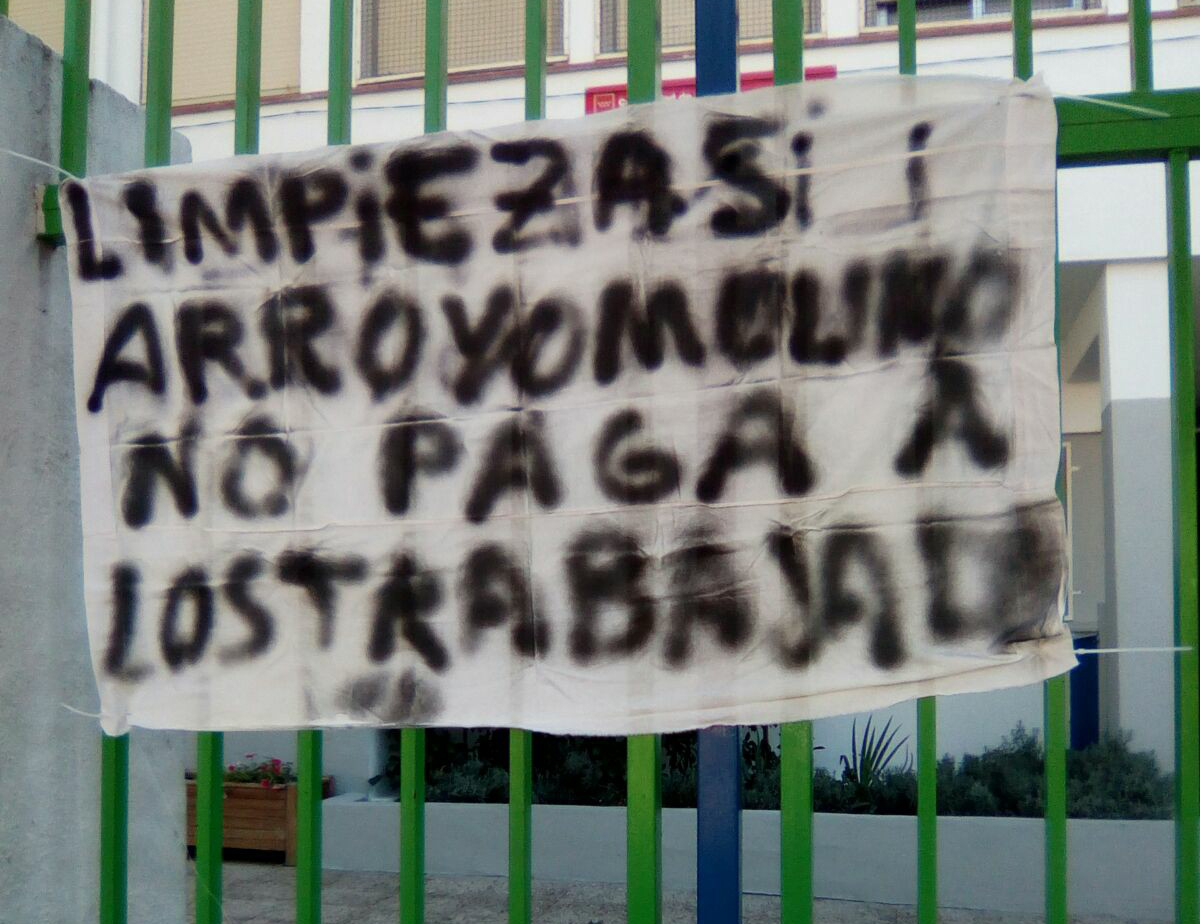 LIMPIEZAS i i
ARROYOMOLINO
NO PAGA A
LOS TRABAJAD